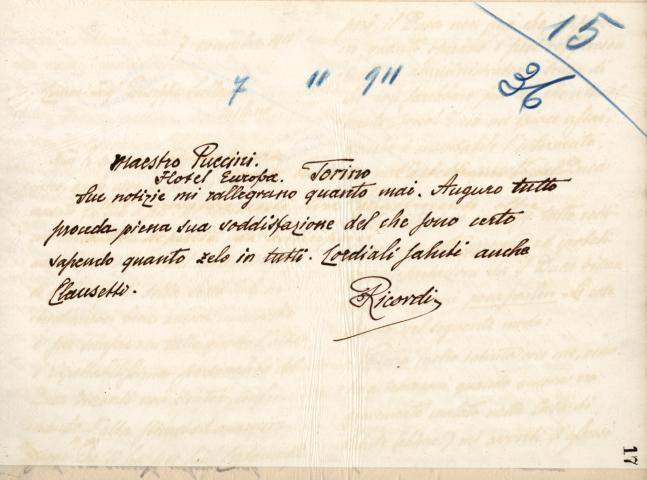 15
7 11 911
36
Maestro Puccini.
Hotel Europa. Torino
Sue notizie mi rallegrano quanto mai. Auguro tutto
proceda piena sua soddisfazione del che sono certo
sapendo quanto zelo in tutti. Cordiali saluti anche
Clausetti.
Ricordi
17